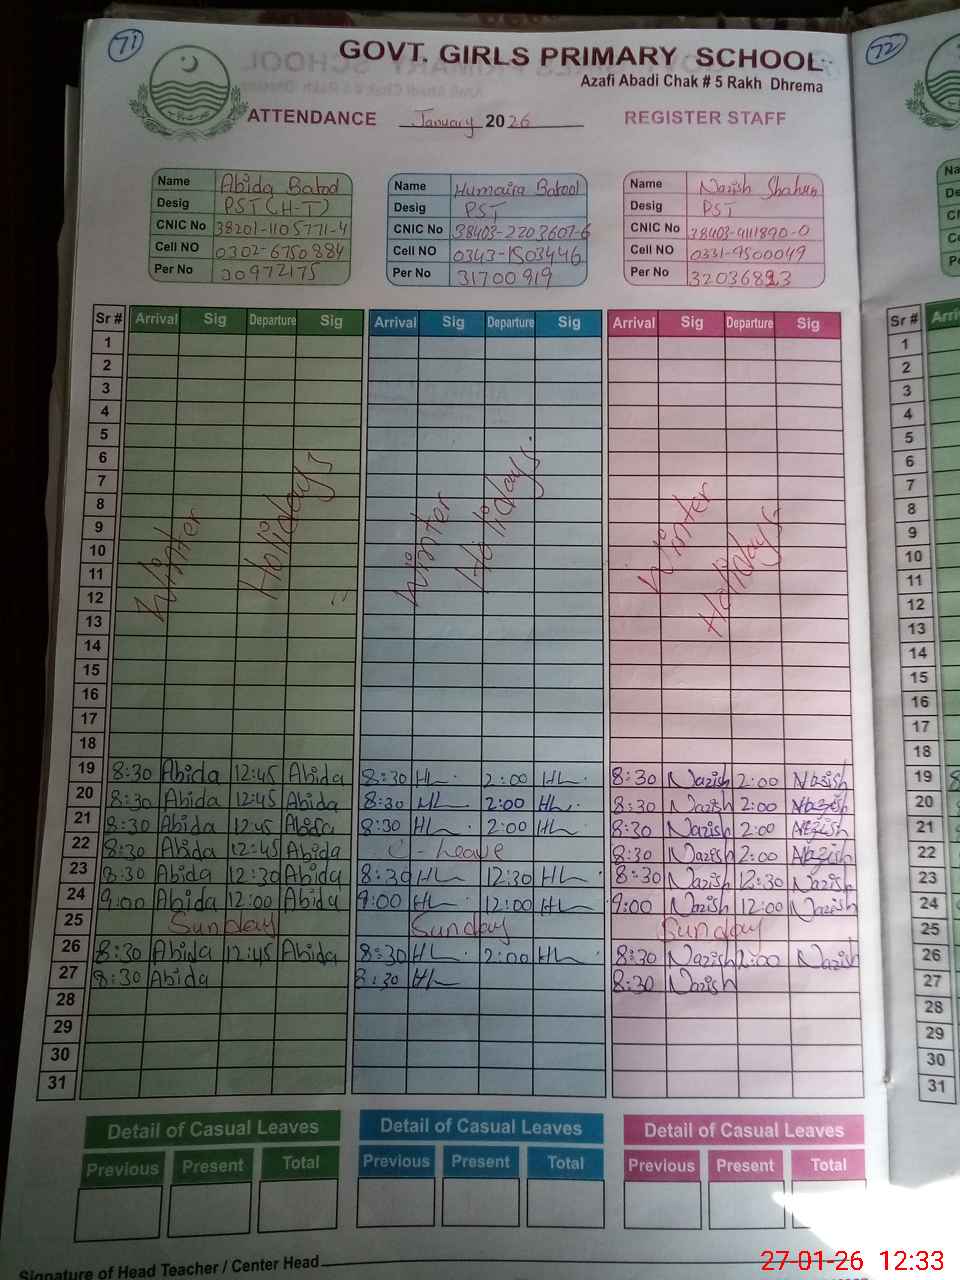 71
GOVT. GIRLS PRIMARY SCHOOL
72
Azafi Abadi Chak # 5 Rakh Dhrema
ATTENDANCE January 2026 REGISTER STAFF
Name Abida Batool
Desig PST (H-T)
CNIC No 38201-1105771-4
Cell NO 0302-6750884
Per No 30972175
Name Humaira Batool
Desig PST
CNIC No 38403-2203607-6
Cell NO 0343-1503446
Per No 31700919
Name Nazish Shaheen
Desig PST
CNIC No 38403-9111890-0
Cell NO 0331-9500049
Per No 32036823
Sr # Arrival Sig Departure Sig Arrival Sig Departure Sig Arrival Sig Departure Sig Sr #
1 1
2 2
3 3
4 4
5 5
6 6
7 7
8 8
9 9
10 10
11 11
12 12
13 13
14 14
15 15
16 16
17 17
18 18
Winter Holidays Winter Holidays Winter Holidays
19 8:30 Abida 12:45 Abida 8:30 HL 2:00 HL 8:30 Nazish 2:00 Nazish 19
20 8:30 Abida 12:45 Abida 8:30 HL 2:00 HL 8:30 Nazish 2:00 Nazish 20
21 8:30 Abida 12:45 Abida 8:30 HL 2:00 HL 8:30 Nazish 2:00 Nazish 21
22 8:30 Abida 12:45 Abida C-Leave 8:30 Nazish 2:00 Nazish 22
23 8:30 Abida 12:30 Abida 8:30 HL 12:30 HL 8:30 Nazish 12:30 Nazish 23
24 9:00 Abida 12:00 Abida 9:00 HL 12:00 HL 9:00 Nazish 12:00 Nazish 24
25 Sunday Sunday Sunday 25
26 8:30 Abida 12:45 Abida 8:30 HL 2:00 HL 8:30 Nazish 2:00 Nazish 26
27 8:30 Abida 8:30 HL 8:30 Nazish 27
28 28
29 29
30 30
31 31
Detail of Casual Leaves Detail of Casual Leaves Detail of Casual Leaves
Previous Present Total Previous Present Total Previous Present Total
Signature of Head Teacher / Center Head
27-01-26 12:33